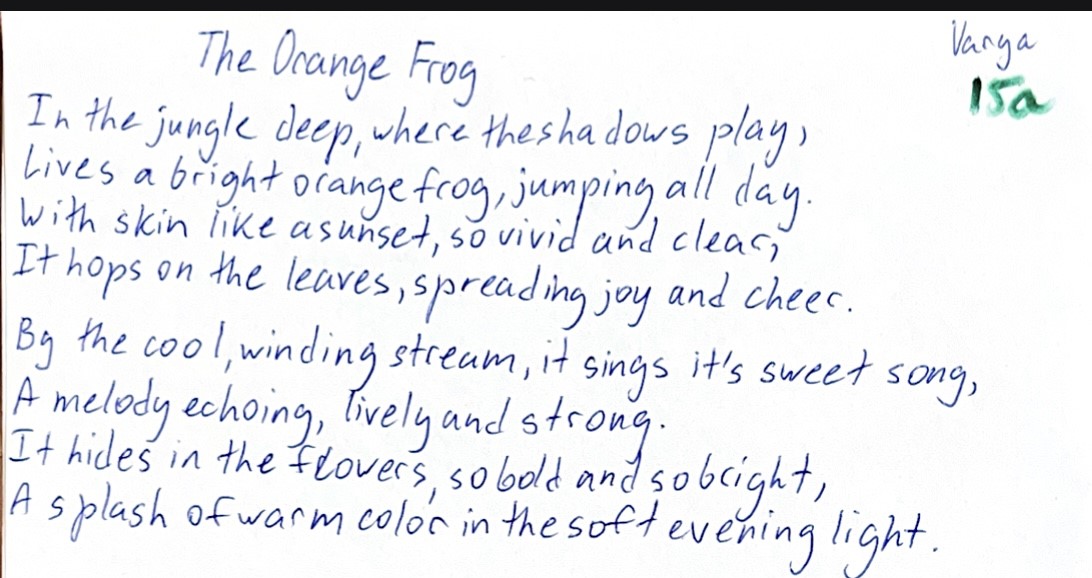 The Orange Frog
Varga
15a
In the jungle deep, where the shadows play,
Lives a bright orange frog, jumping all day.
With skin like a sunset, so vivid and clear,
It hops on the leaves, spreading joy and cheer.
By the cool, winding stream, it sings it's sweet song,
A melody echoing, lively and strong.
It hides in the flovers, so bold and so bright,
A splash of warm color in the soft evening light.